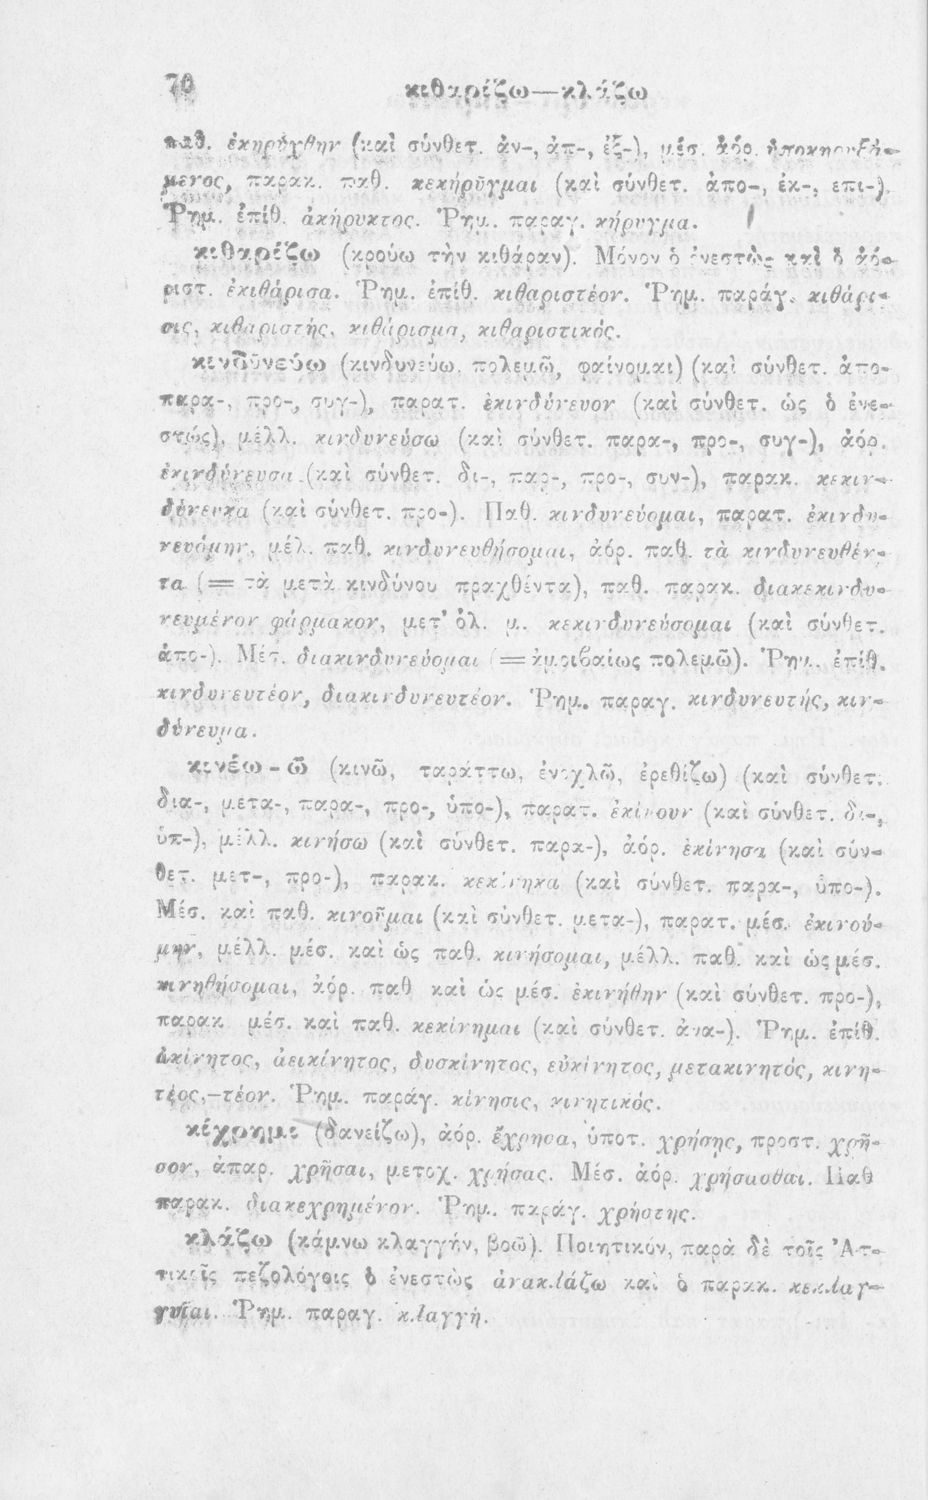 70 κιθαρίζω—κλάζω
παθ. ἐκηρύχθην (καὶ σύνθετ. ἀν-, ἀπ-, ἐξ-), μέσ. ἀόρ. ὑποκηρυξά-
μενος, παρακ. παθ. κεκήρῡγμαι (καὶ σύνθετ. ἀπο-, ἐκ-, επι-).
Ῥημ. ἐπίθ. ἀκήρυκτος. Ῥημ. παραγ. κήρυγμα.
κιθαρίζω (κρούω τὴν κιθάραν). Μόνον ὁ ἐνεστὼς καὶ ὁ ἀό-
ριστ. ἐκιθάρισα. Ῥημ. ἐπίθ. κιθαριστέον. Ῥημ. παράγ. κιθάρι-
σις, κιθαριστής, κιθάρισμα, κιθαριστικός.
κινδῡνεύω (κινδυνεύω, πολεμῶ, φαίνομαι) (καὶ σύνθετ. ἀπο-
παρα-, προ-, συγ-), παρατ. ἐκινδύνευον (καὶ σύνθετ. ὡς ὁ ἐνε-
στώς), μέλλ. κινδυνεύσω (καὶ σύνθετ. παρα-, προ-, συγ-), ἀόρ.
ἐκινδύνευσα (καὶ σύνθετ. δι-, παρ-, προ-, συν-), παρακ. κεκιν-
δύνευκα (καὶ σύνθετ. προ-). Παθ. κινδυνεύομαι, παρατ. ἐκινδυ-
νευόμην, μέλ. παθ. κινδυνευθήσομαι, ἀόρ. παθ. τὰ κινδυνευθέν-
τα (= τὰ μετὰ κινδύνου πραχθέντα), παθ. παρακ. διακεκινδυ-
νευμένον φάρμακον, μετ' ὀλ. μ. κεκινδυνεύσομαι (καὶ σύνθετ.
ἀπο-). Μέσ. διακινδυνεύομαι (= ἀμοιβαίως πολεμῶ). Ῥημ. ἐπίθ.
κινδυνευτέον, διακινδυνευτέον. Ῥημ. παραγ. κινδυνευτής, κιν-
δύνευμα.
κινέω-ῶ (κινῶ, ταράττω, ἐνοχλῶ, ἐρεθίζω) (καὶ σύνθετ.
δια-, μετα-, παρα-, προ-, ὑπο-), παρατ. ἐκίνουν (καὶ σύνθετ. δι-,
ὑπ-), μέλλ. κινήσω (καὶ σύνθετ. παρα-), ἀόρ. ἐκίνησα (καὶ σύν-
θετ. μετ-, προ-), παρακ. κεκίνηκα (καὶ σύνθετ. παρα-, ὑπο-).
Μέσ. καὶ παθ. κινοῦμαι (καὶ σύνθετ. μετα-), παρατ. μέσ. ἐκινού-
μην, μέλλ. μέσ. καὶ ὡς παθ. κινήσομαι, μέλλ. παθ. καὶ ὡς μέσ.
κινηθήσομαι, ἀόρ. παθ καὶ ὡς μέσ. ἐκινήθην (καὶ σύνθετ. προ-),
παρακ μέσ. καὶ παθ. κεκίνημαι (καὶ σύνθετ. ἀνα-). Ῥημ. ἐπίθ.
ἀκίνητος, ἀεικίνητος, δυσκίνητος, εὐκίνητος, μετακινητός, κινη-
τέος,-τέον. Ῥημ. παράγ. κίνησις, κινητικός.
κίχρημι (δανείζω), ἀόρ. ἔχρησα, ὑποτ. χρήσῃς, προστ. χρῆ-
σον, ἀπαρ. χρῆσαι, μετοχ. χρήσας. Μέσ. ἀόρ. χρήσασθαι. Παθ
παρακ. διακεχρημένον. Ῥημ. παράγ. χρήστης.
κλάζω (κάμνω κλαγγήν, βοῶ). Ποιητικόν, παρὰ δὲ τοῖς Ἀτ-
τικοῖς πεζολόγοις ὁ ἐνεστὼς ἀνακλάζω καὶ ὁ παρακ. κεκλαγ-
γυῖαι. Ῥημ. παραγ. κλαγγή.